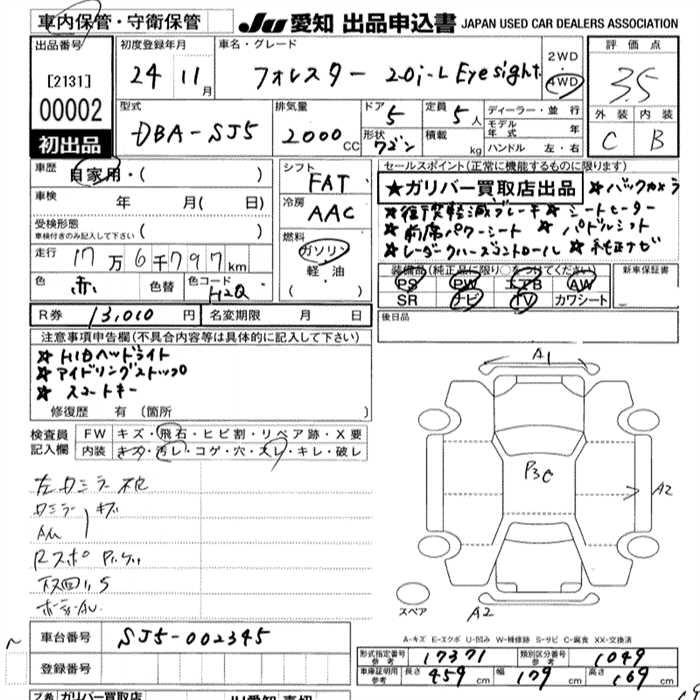 車内保管・守衛保管
JU 愛知 出品申込書 JAPAN USED CAR DEALERS ASSOCIATION
出品番号 [2131] 00002 初出品
初度登録年月 24 11 月
車名・グレード フォレスター 2.0i-L Eyesight
2WD 4WD
評価点 3.5
外装 C 内装 B
型式 DBA-SJ5
排気量 2000 CC
ドア 5 形状 ワゴン
定員 5 人 積載 kg
ディーラー・並行
モデル年式 年
ハンドル 左・右
車歴 自家用・( )
車検 年 月( 日)
受検形態 ( )
車検付きのみ記入して下さい
走行 17万6千797km
色 赤 色替 色コード H2Q
シフト FAT
冷房 AAC
燃料 ガソリン
軽油
( ・ )
セールスポイント(正常に機能するものに限ります)
★ガリバー買取店出品 ★バックカメラ
★衝突軽減ブレーキ ★シートヒーター
★前席パワーシート ★パドルシフト
★レーダークルーズコントロール ★純正ナビ
装備品(純正品に限り○をつけてください)
PS PW エアB AW
SR ナビ TV カワシート
新車保証書
R券 13,010 円 名変期限 月 日
後日品
注意事項申告欄(不具合内容等は具体的に記入して下さい)
★HIDヘッドライト
★アイドリングストップ
★スマートキー
修復歴 有 (箇所 )
検査員記入欄
FW キズ・飛石・ヒビ割・リペア跡・X要
内装 キズ・汚レ・コゲ・穴・スレ・キレ・破レ
左ロミラー
キズ
AW
A1
P3C
A2
A2
スペア
A-キズ E-エクボ U-凹み W-補修跡 S-サビ C-腐食 XX-交換済
車台番号 SJ5-002345
登録番号
形式指定番号 参考 17371 類別区分番号 参考 1049
車庫証明用 参考 長さ 459 cm 幅 179 cm 高さ 169 cm
ガリバー買取店 JU愛知